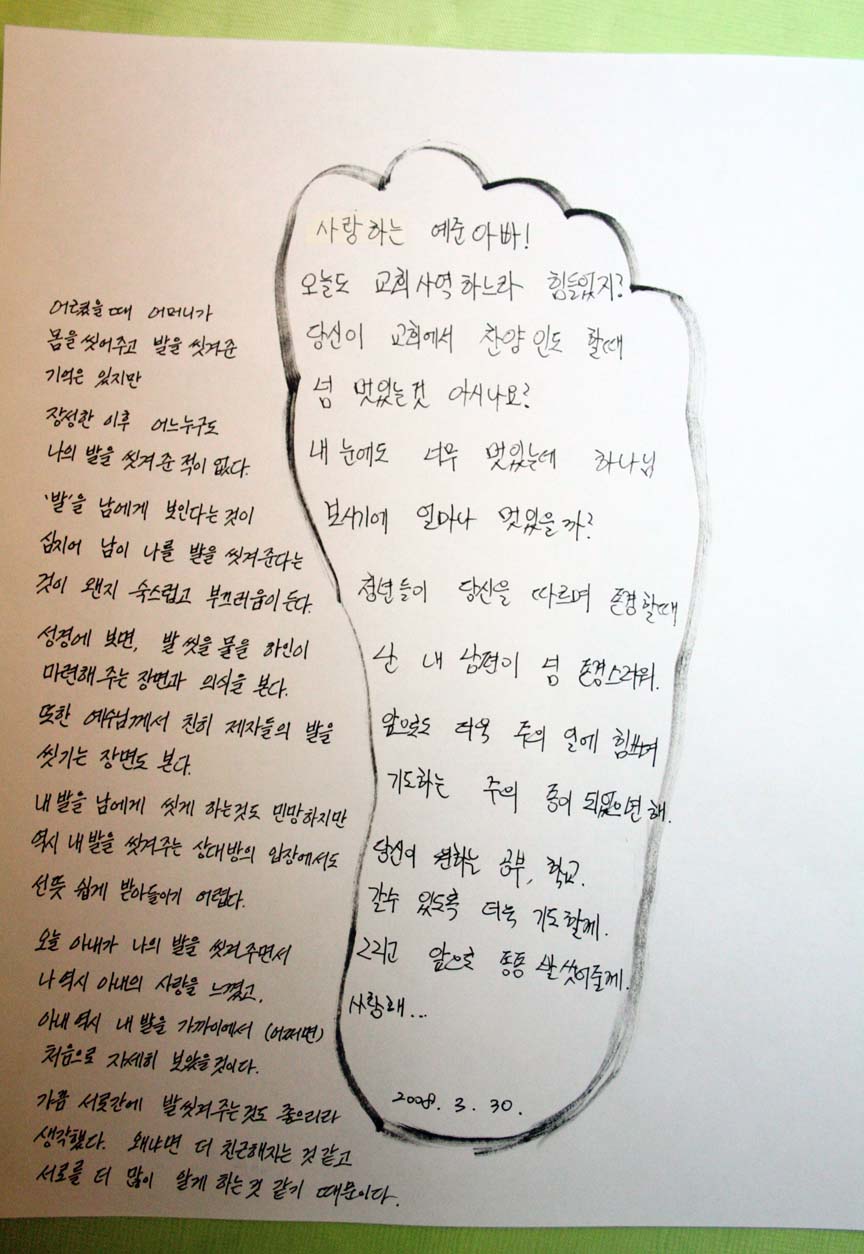 어렸을때 어머니가
몸을 씻어주고 발을 씻겨준
기억은 있지만
장성한 이후 어느누구도
나의 발을 씻겨준적이 없다.
'발'을 남에게 보인다는것이
심지어 남이 나를 발을 씻겨준다는
것이 왠지 숙스럽고 부끄러움이든다.
성경에 보면, 발씻을 물을 하인이
마련해주는 장면과 의식을 본다.
또한 예수님께서 친히 제자들의 발을
씻기는 장면도 본다.
내발을 남에게 씻게 하는것도 민망하지만
역시 내발을 씻겨주는 상대방의 입장에서도
선뜻 쉽게 받아들이기 어렵다.
오늘 아내가 나의 발을 씻겨주면서
나역시 아내의 사랑을 느꼈고,
아내역시 내발을 가까이에서 (어쩌면)
처음으로 자세히 보았을것이다.
가끔 서로간에 발씻겨주는것도 좋으리라
생각했다. 왜냐면 더 친근해지는것같고
서로를 더 많이 알게 하는것 같기 때문이다.
사랑하는 예준아빠!
오늘도 교회사역하느라 힘들었지?
당신이 교회에서 찬양인도 할때
넘 멋있는것 아시나요?
내눈에도 너무 멋있는데 하나님
보시기에 얼마나 멋있을까?
청년들이 당신을 따르며 존경할때
난 내 남편이 넘 존경스러워.
앞으로도 더욱 주의 일에 힘쓰며
기도하는 주의 종이 되었으면해.
당신이 원하는 공부, 학교.
갈수 있도록 더욱 기도할께.
그리고 앞으로 종종 발씻어줄께.
사랑해...
2008. 3. 30.